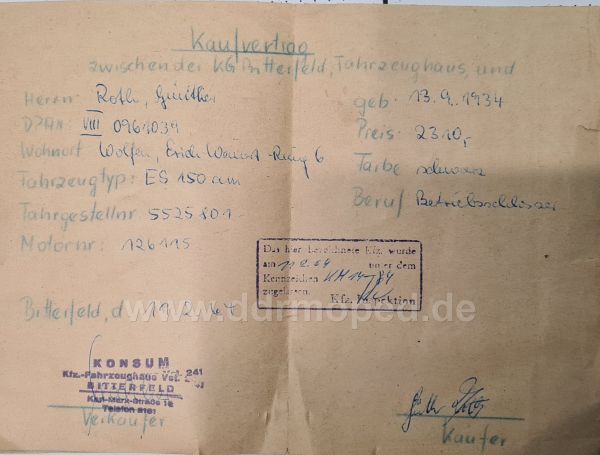 Kaufvertrag
zwischen der KG Bitterfeld, Fahrzeughaus, und
Herrn Roth, Günther geb. 13.9.1934
DPAN: VIII 0961039 Preis: 2310,-
Wohnort Wolfen, Erich Weinert-Ring 6 Farbe schwarz
Fahrzeugtyp: ES 150 ccm Beruf Betriebsschlosser
Fahrgestellnr. 5525801
Motornr: 126115
Das hier bezeichnete Kfz. wurde
am 11.2.64 unter dem
Kennzeichen
zugelassen.
Kfz.
Bitterfeld, d. 11.2.64
www.ddrmoped.de
KONSUM
Kfz.-Fahrzeughaus Vst. 241
BITTERFELD
Karl-Marx-Straße
Telefon
Verkäufer
Käufer